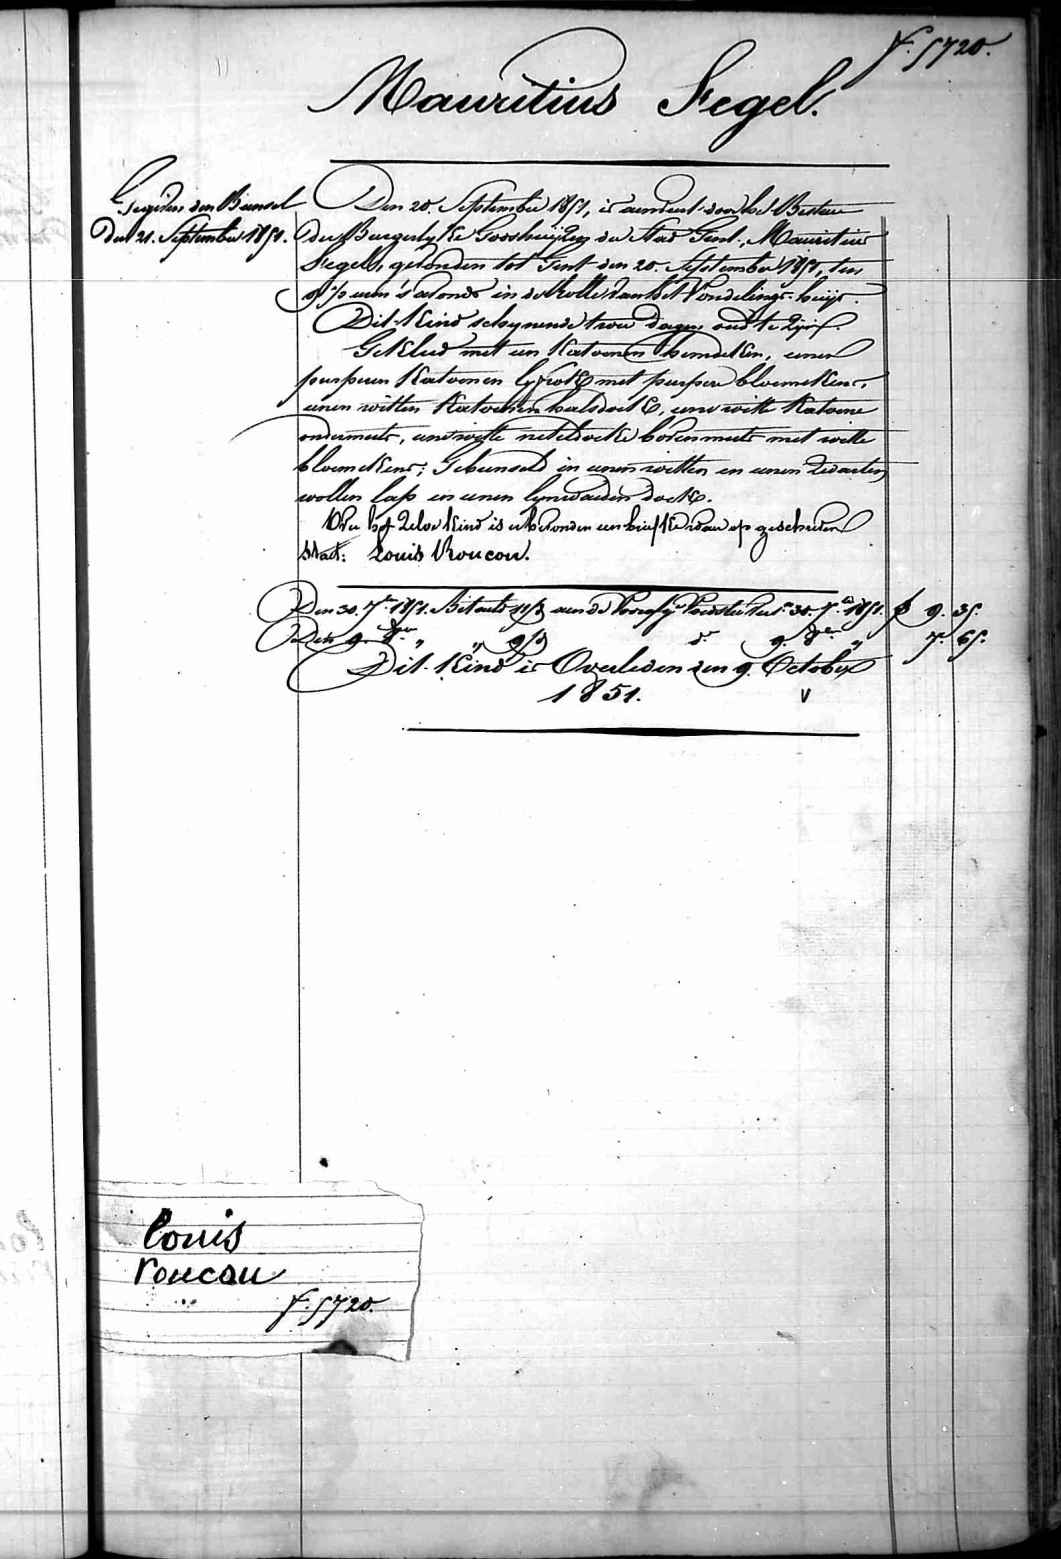 f. 5720.
Mauritius Segel.
Gegeven den Bunsel
den 21. September 1851.
Den 20. September 1851, is aenveerd door het Bestuer
der Burgerlyke Godshuizen der Stad Gent, Mauritius
Segel, gevonden tot Gent den 20. September 1851, ten
9 1/2 uren 's avonds in de Rolle van het Vondelings-huys.
Dit Kind schynende twee dagen oud te zyn.
Gekleed met een Katoenen hemdeken, eenen
purpuren Katoenen lyfrok met purpere bloemekens,
eenen witten Katoenen halsdoek, eene witte Katoene
ondermuts, eene witte neteldoeke bovenmuts met witte
bloemekens; Gebunseld in eenen witten en eenen zwarten
wollen lap en eenen lynwaeden doek.
Over het zelve Kind is er bevonden een briefke waer op geschreven
staet: Louis Roucou.
Den 30. 7.bre 1851. Betaeld 11/3 aen de 30. 7.bre 1851. f 9. 35.
Den 9. 8.bre " " 9/3 d.o 9. 8.bre " 7. 65.
Dit Kind is Overleden den 9. October
1851. v
Louis
roucou
f. 5720.